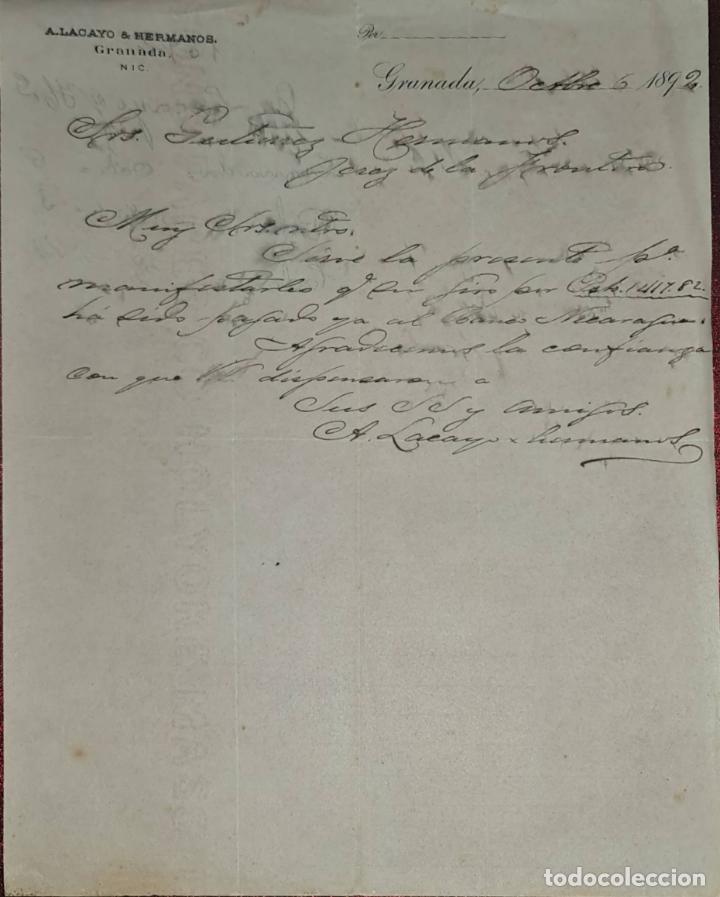 A. LACAYO & HERMANOS.
Granada,
NIC.
Por
Granada, Octbre 6 1892.
Srs. Gutierrez Hermanos.
Jerez de la Frontera.
Muy Srs. ntros.
Sirve la presente pa.
manifestarles q. su giro por 1417.82.
há sido pagado ya al Banco Nicaragua.
Agradecemos la confianza
con que dispensaron a
Sus SS y amigos.
A. Lacayo & hermanos
todocoleccion